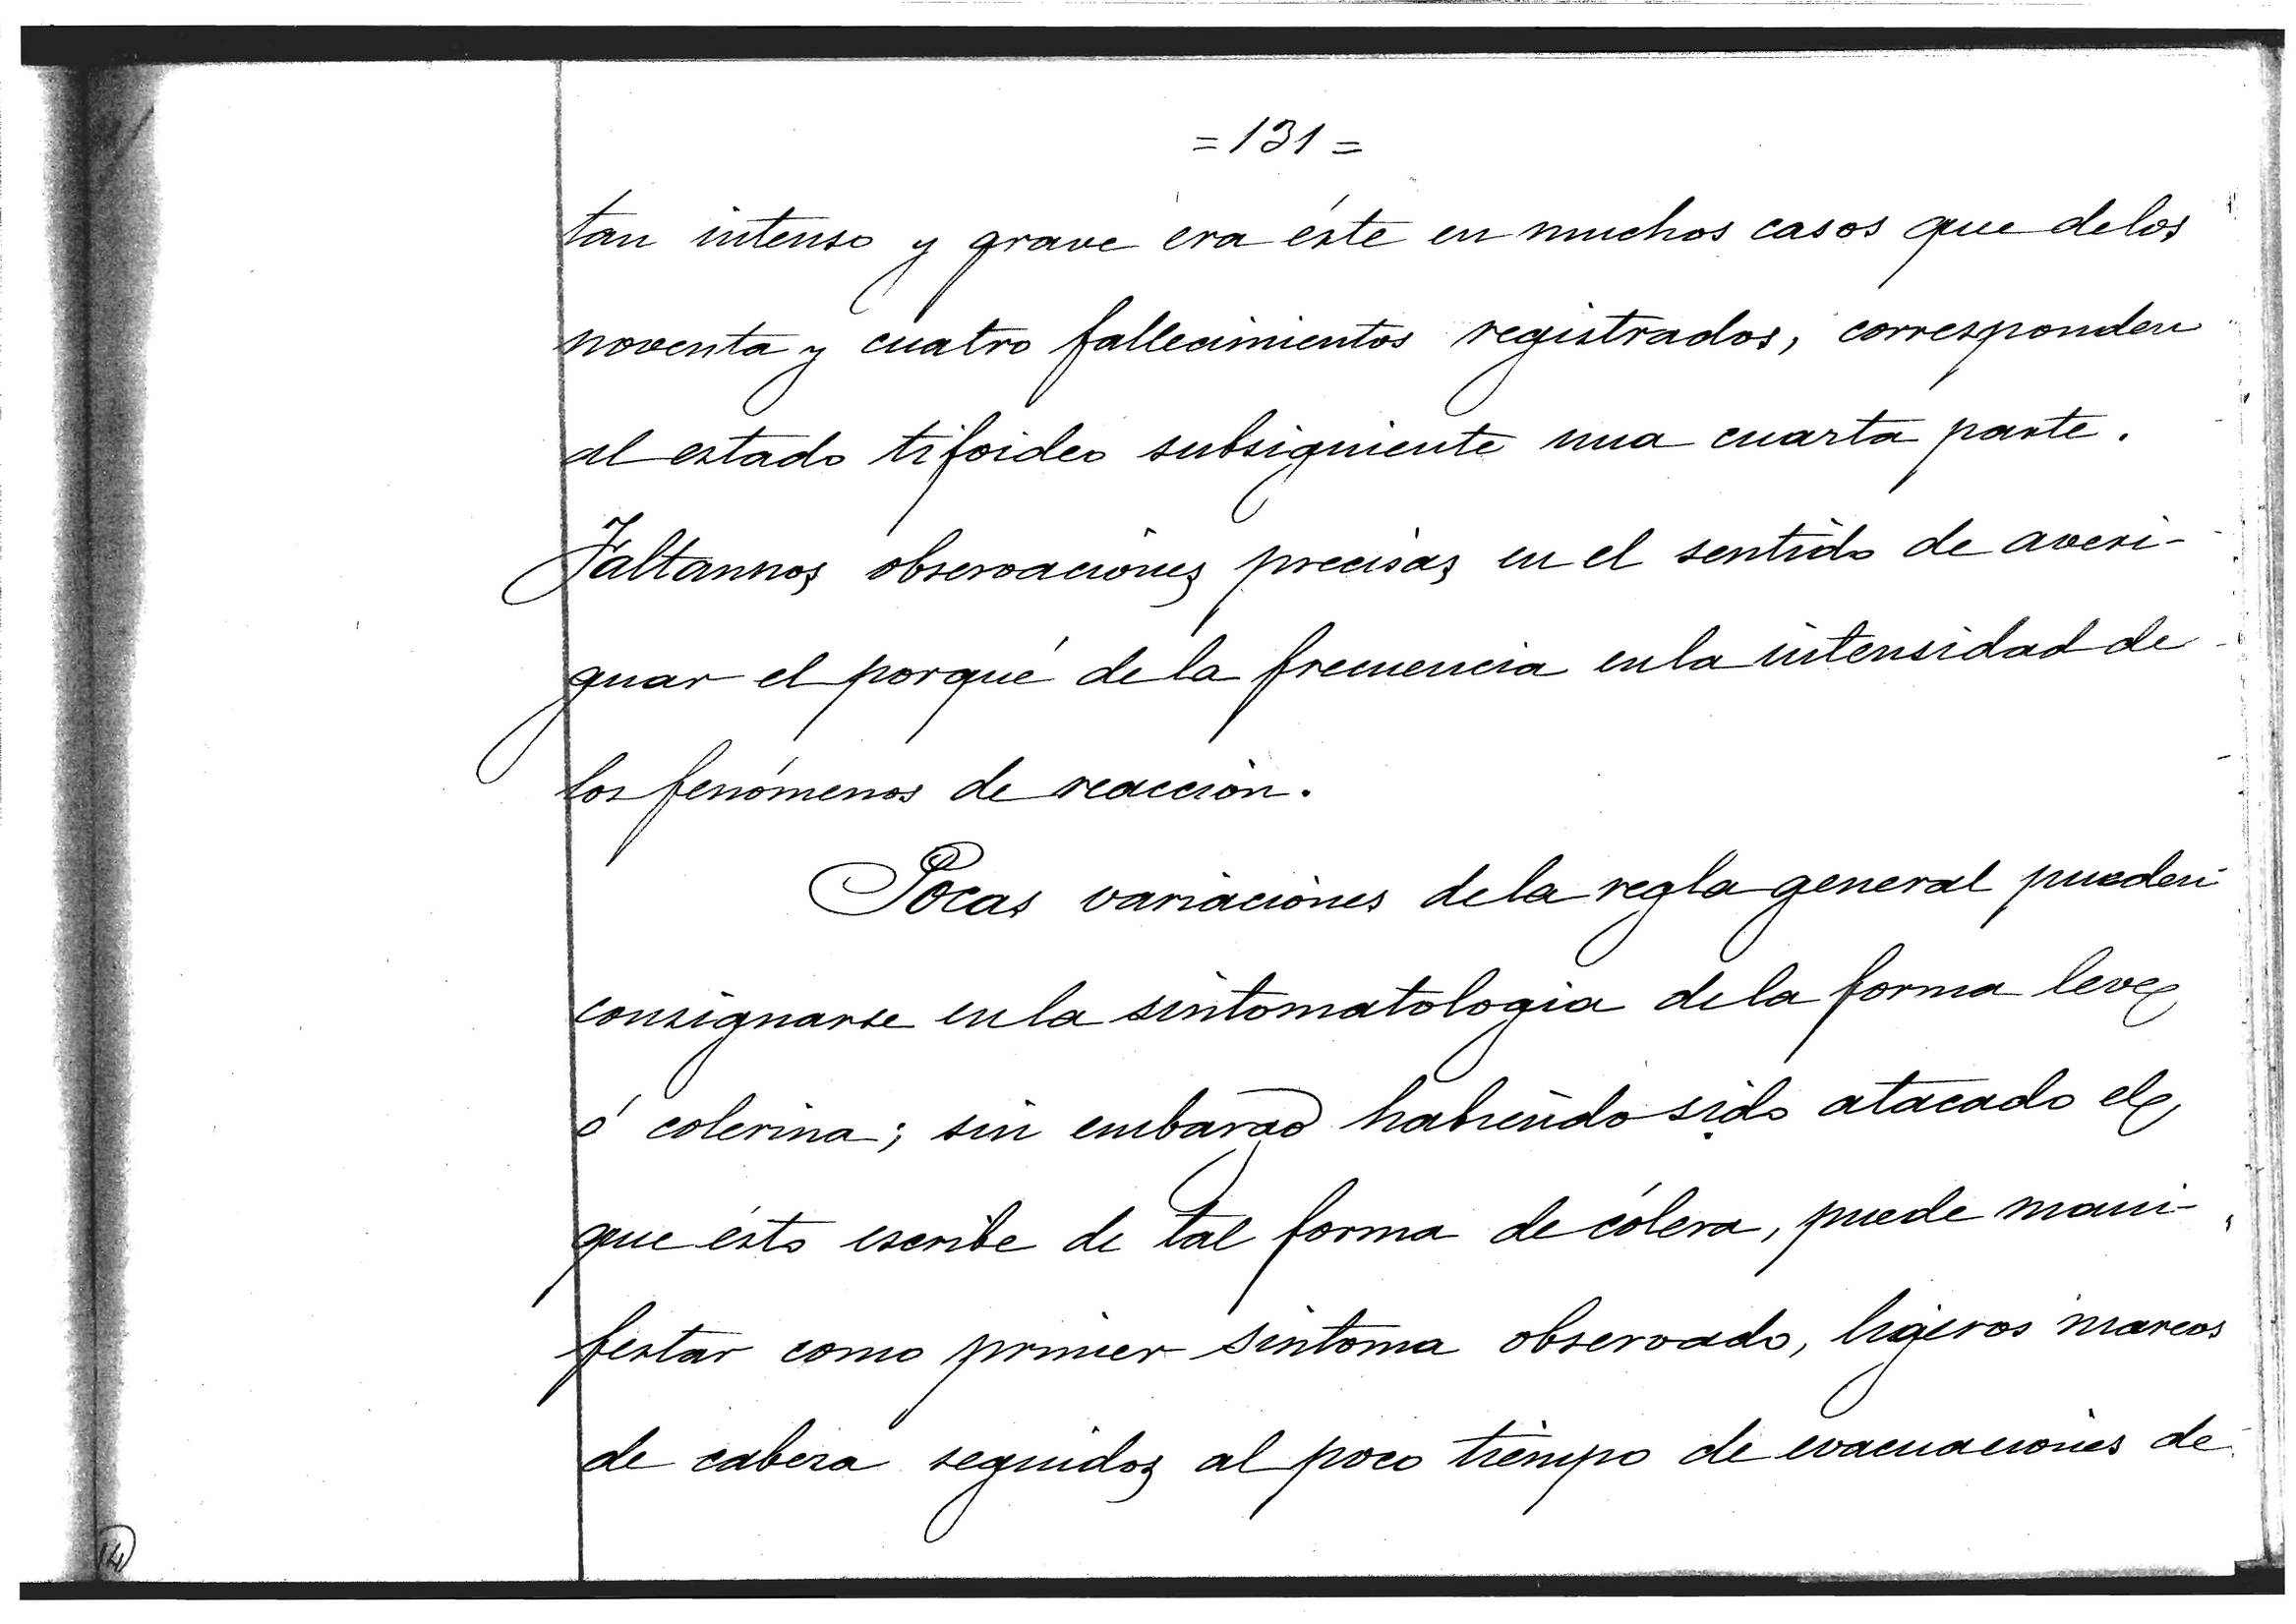 =131=
tan intenso y grave era éste en muchos casos que de los
noventa y cuatro fallecimientos registrados, corresponden
al estado tifoideo subsiguiente una cuarta parte.
Faltannos observaciones precisas en el sentido de averi-
guar el porqué de la frecuencia en la intensidad de
los fenómenos de reacción.
Pocas variaciones de la regla general pueden
consignarse en la sintomatologia de la forma leve
ó colerina; sin embargo habiendo sido atacado el
que ésto escribe de tal forma de cólera, puede mani-
festar como primer sintoma observado, ligeros mareos
de cabeza seguidos al poco tiempo de evacuaciones de
14